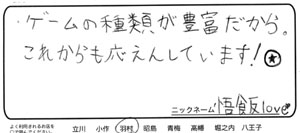 ゲームの種類が豊富だから。
これからも応えんしています!★
ニックネーム 悟飯love
よく利用されるお店を
立川 小作 羽村 昭島 青梅 高幡 堀之内 八王子